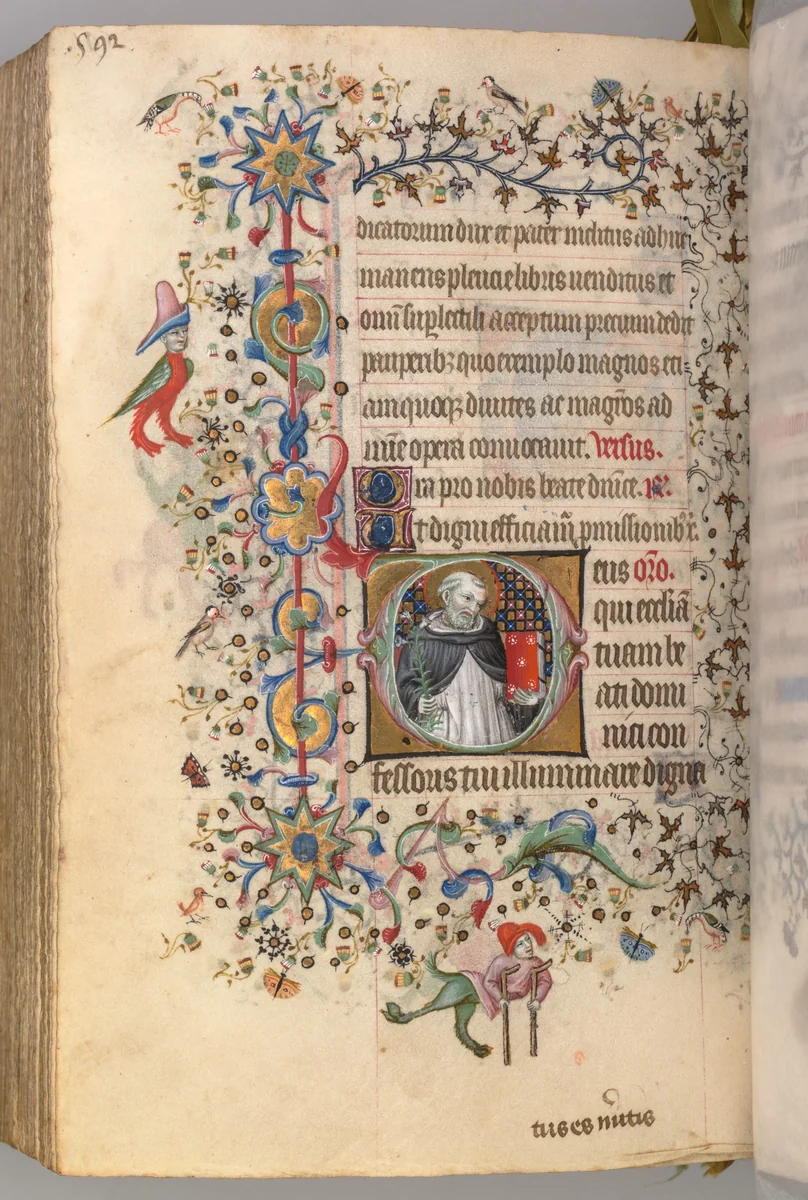 592
dicatorum dux et pater inclitus adhuc
manens puericie libris uenditus et
om̄i supplectili acceptum precium dedit
pauperibꝫ quo exemplo magnos eci-
am quoqꝫ diuites ac magr̄os ad
mīe opera conuocauit. Versus.
Ora pro nobis beate dn̄ice. R.
Vt digni efficiam̄ pmissionibꝰ x̄.
eus or̄o.
qui eccliā
tuam be
ati domi
nici con
fessoris tui illuminare digna
tus es mītis